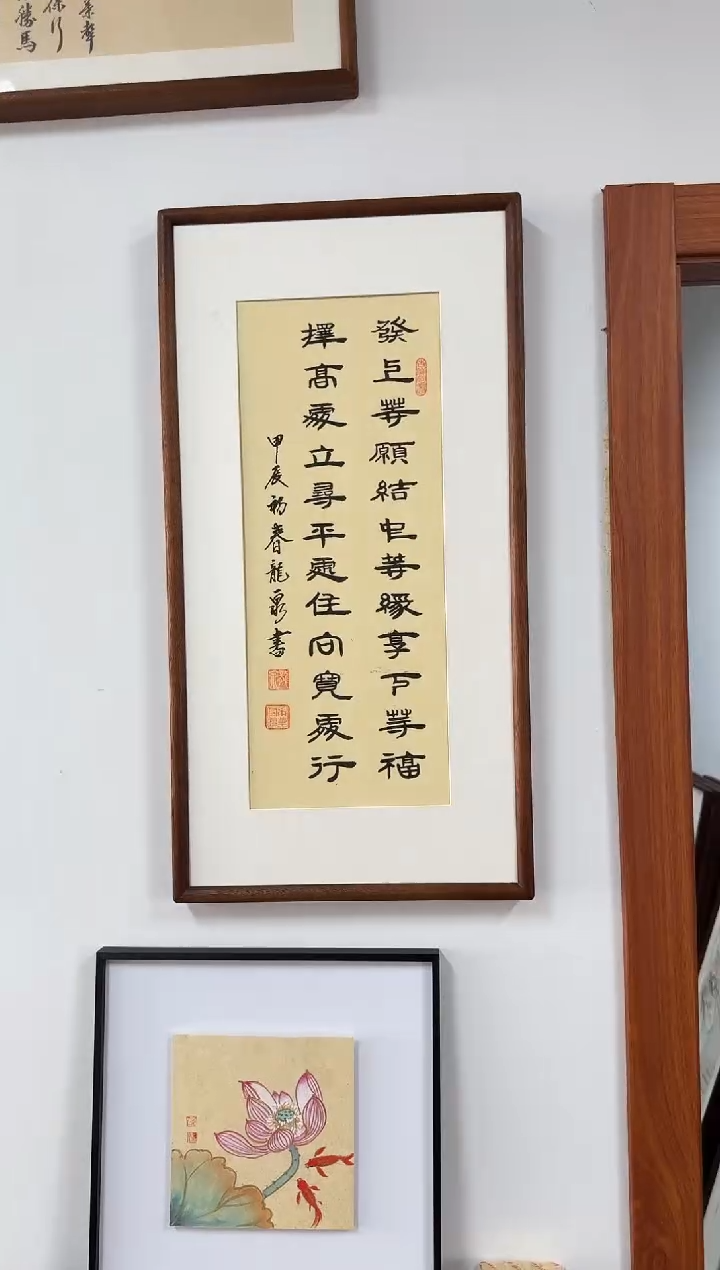 勝馬
發上等願結中等緣享下等福
擇高處立尋平處住向寬處行
甲辰初春龍泉書